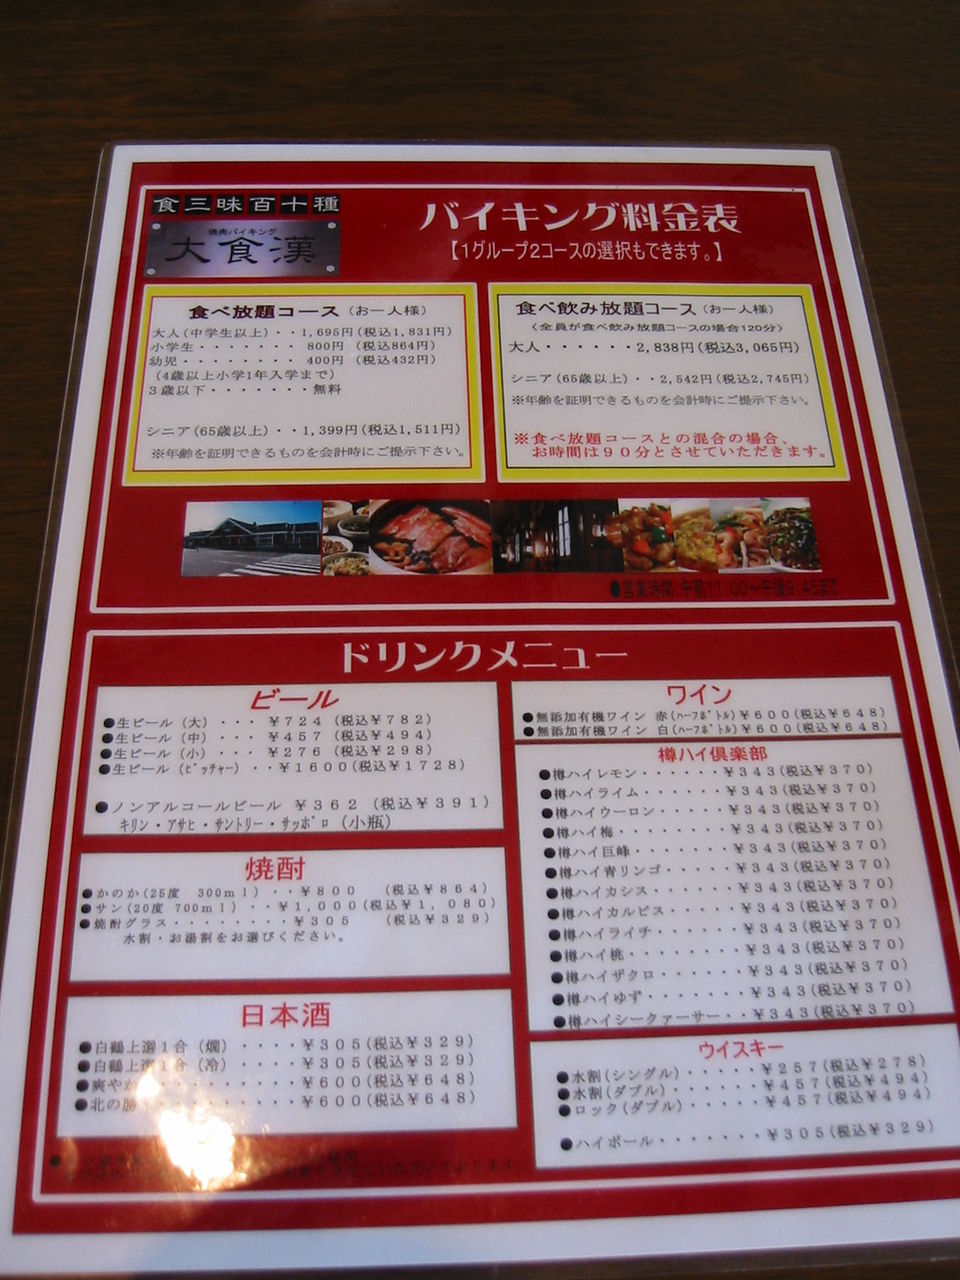 食三昧百十種
焼肉バイキング
大食漢
バイキング料金表
【1グループ2コースの選択もできます。】
食べ放題コース(お一人様)
大人(中学生以上)・・1,695円(税込1,831円)
小学生・・・・・・・・800円(税込864円)
幼児・・・・・・・・400円(税込432円)
(4歳以上小学1年入学まで)
3歳以下・・・・・・・無料
シニア(65歳以上)・・1,399円(税込1,511円)
※年齢を証明できるものを会計時にご提示下さい。
食べ飲み放題コース(お一人様)
〈全員が食べ飲み放題コースの場合120分〉
大人・・・・・・2,838円(税込3,065円)
シニア(65歳以上)・・2,542円(税込2,745円)
※年齢を証明できるものを会計時にご提示下さい。
※食べ放題コースとの混合の場合、
お時間は90分とさせていただきます。
●営業時間 午前11:00〜午後9:45まで
ドリンクメニュー
ビール
●生ビール(大)・・・¥724(税込¥782)
●生ビール(中)・・・¥457(税込¥494)
●生ビール(小)・・・¥276(税込¥298)
●生ビール(ピッチャー)・・¥1600(税込¥1728)
●ノンアルコールビール ¥362(税込¥391)
キリン・アサヒ・サントリー・サッポロ(小瓶)
焼酎
●かのか(25度 300ml)・・¥800(税込¥864)
●サン(20度 700ml)・・¥1,000(税込¥1,080)
●焼酎グラス・・・・・・・・¥305(税込¥329)
水割・お湯割をお選びください。
日本酒
●白鶴上選1合(燗)・・・・¥305(税込¥329)
●白鶴上選1合(冷)・・・・¥305(税込¥329)
●爽やか・・・・・¥600(税込¥648)
●北の勝・・・・・・・・・・¥600(税込¥648)
ワイン
●無添加有機ワイン 赤(ハーフボトル)¥600(税込¥648)
●無添加有機ワイン 白(ハーフボトル)¥600(税込¥648)
樽ハイ倶楽部
●樽ハイレモン・・・・・・¥343(税込¥370)
●樽ハイライム・・・・・・¥343(税込¥370)
●樽ハイウーロン・・・・・¥343(税込¥370)
●樽ハイ梅・・・・・・・・¥343(税込¥370)
●樽ハイ巨峰・・・・・・・¥343(税込¥370)
●樽ハイ青リンゴ・・・・・¥343(税込¥370)
●樽ハイカシス・・・・・・¥343(税込¥370)
●樽ハイカルピス・・・・・¥343(税込¥370)
●樽ハイライチ・・・・・・¥343(税込¥370)
●樽ハイ桃・・・・・・・・¥343(税込¥370)
●樽ハイザクロ・・・・・・¥343(税込¥370)
●樽ハイゆず・・・・・・・¥343(税込¥370)
●樽ハイシークァーサー・・¥343(税込¥370)
ウイスキー
●水割(シングル)・・・・・¥257(税込¥278)
●水割(ダブル)・・・・・・¥457(税込¥494)
●ロック(ダブル)・・・・・¥457(税込¥494)
●ハイボール・・・・・・・¥305(税込¥329)